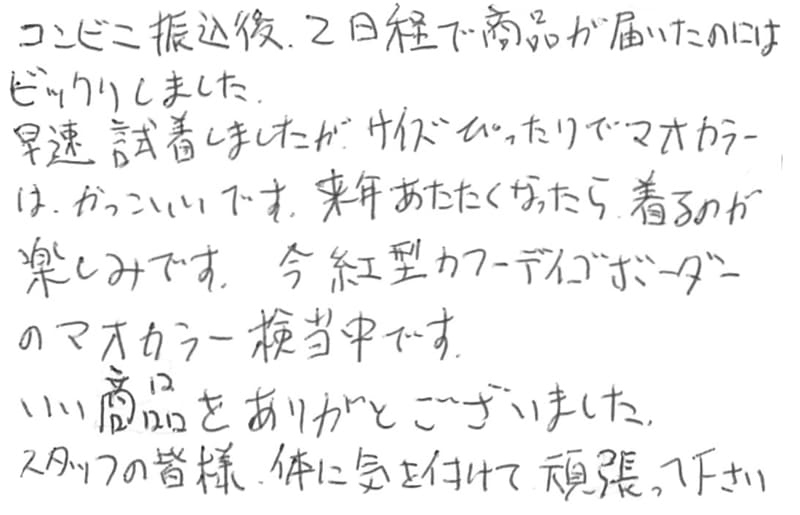 コンビニ振込後、2日経で商品が届いたのには
ビックリしました。
早速 試着しましたが、サイズぴったりでマオカラー
は、かっこいいです。来年あたたくなったら、着るのが
楽しみです。 今 紅型カフーデイゴボーダー
のマオカラー検当中です。
いい商品をありがとございました。
スタッフの皆様、体に気を付けて頑張って下さい